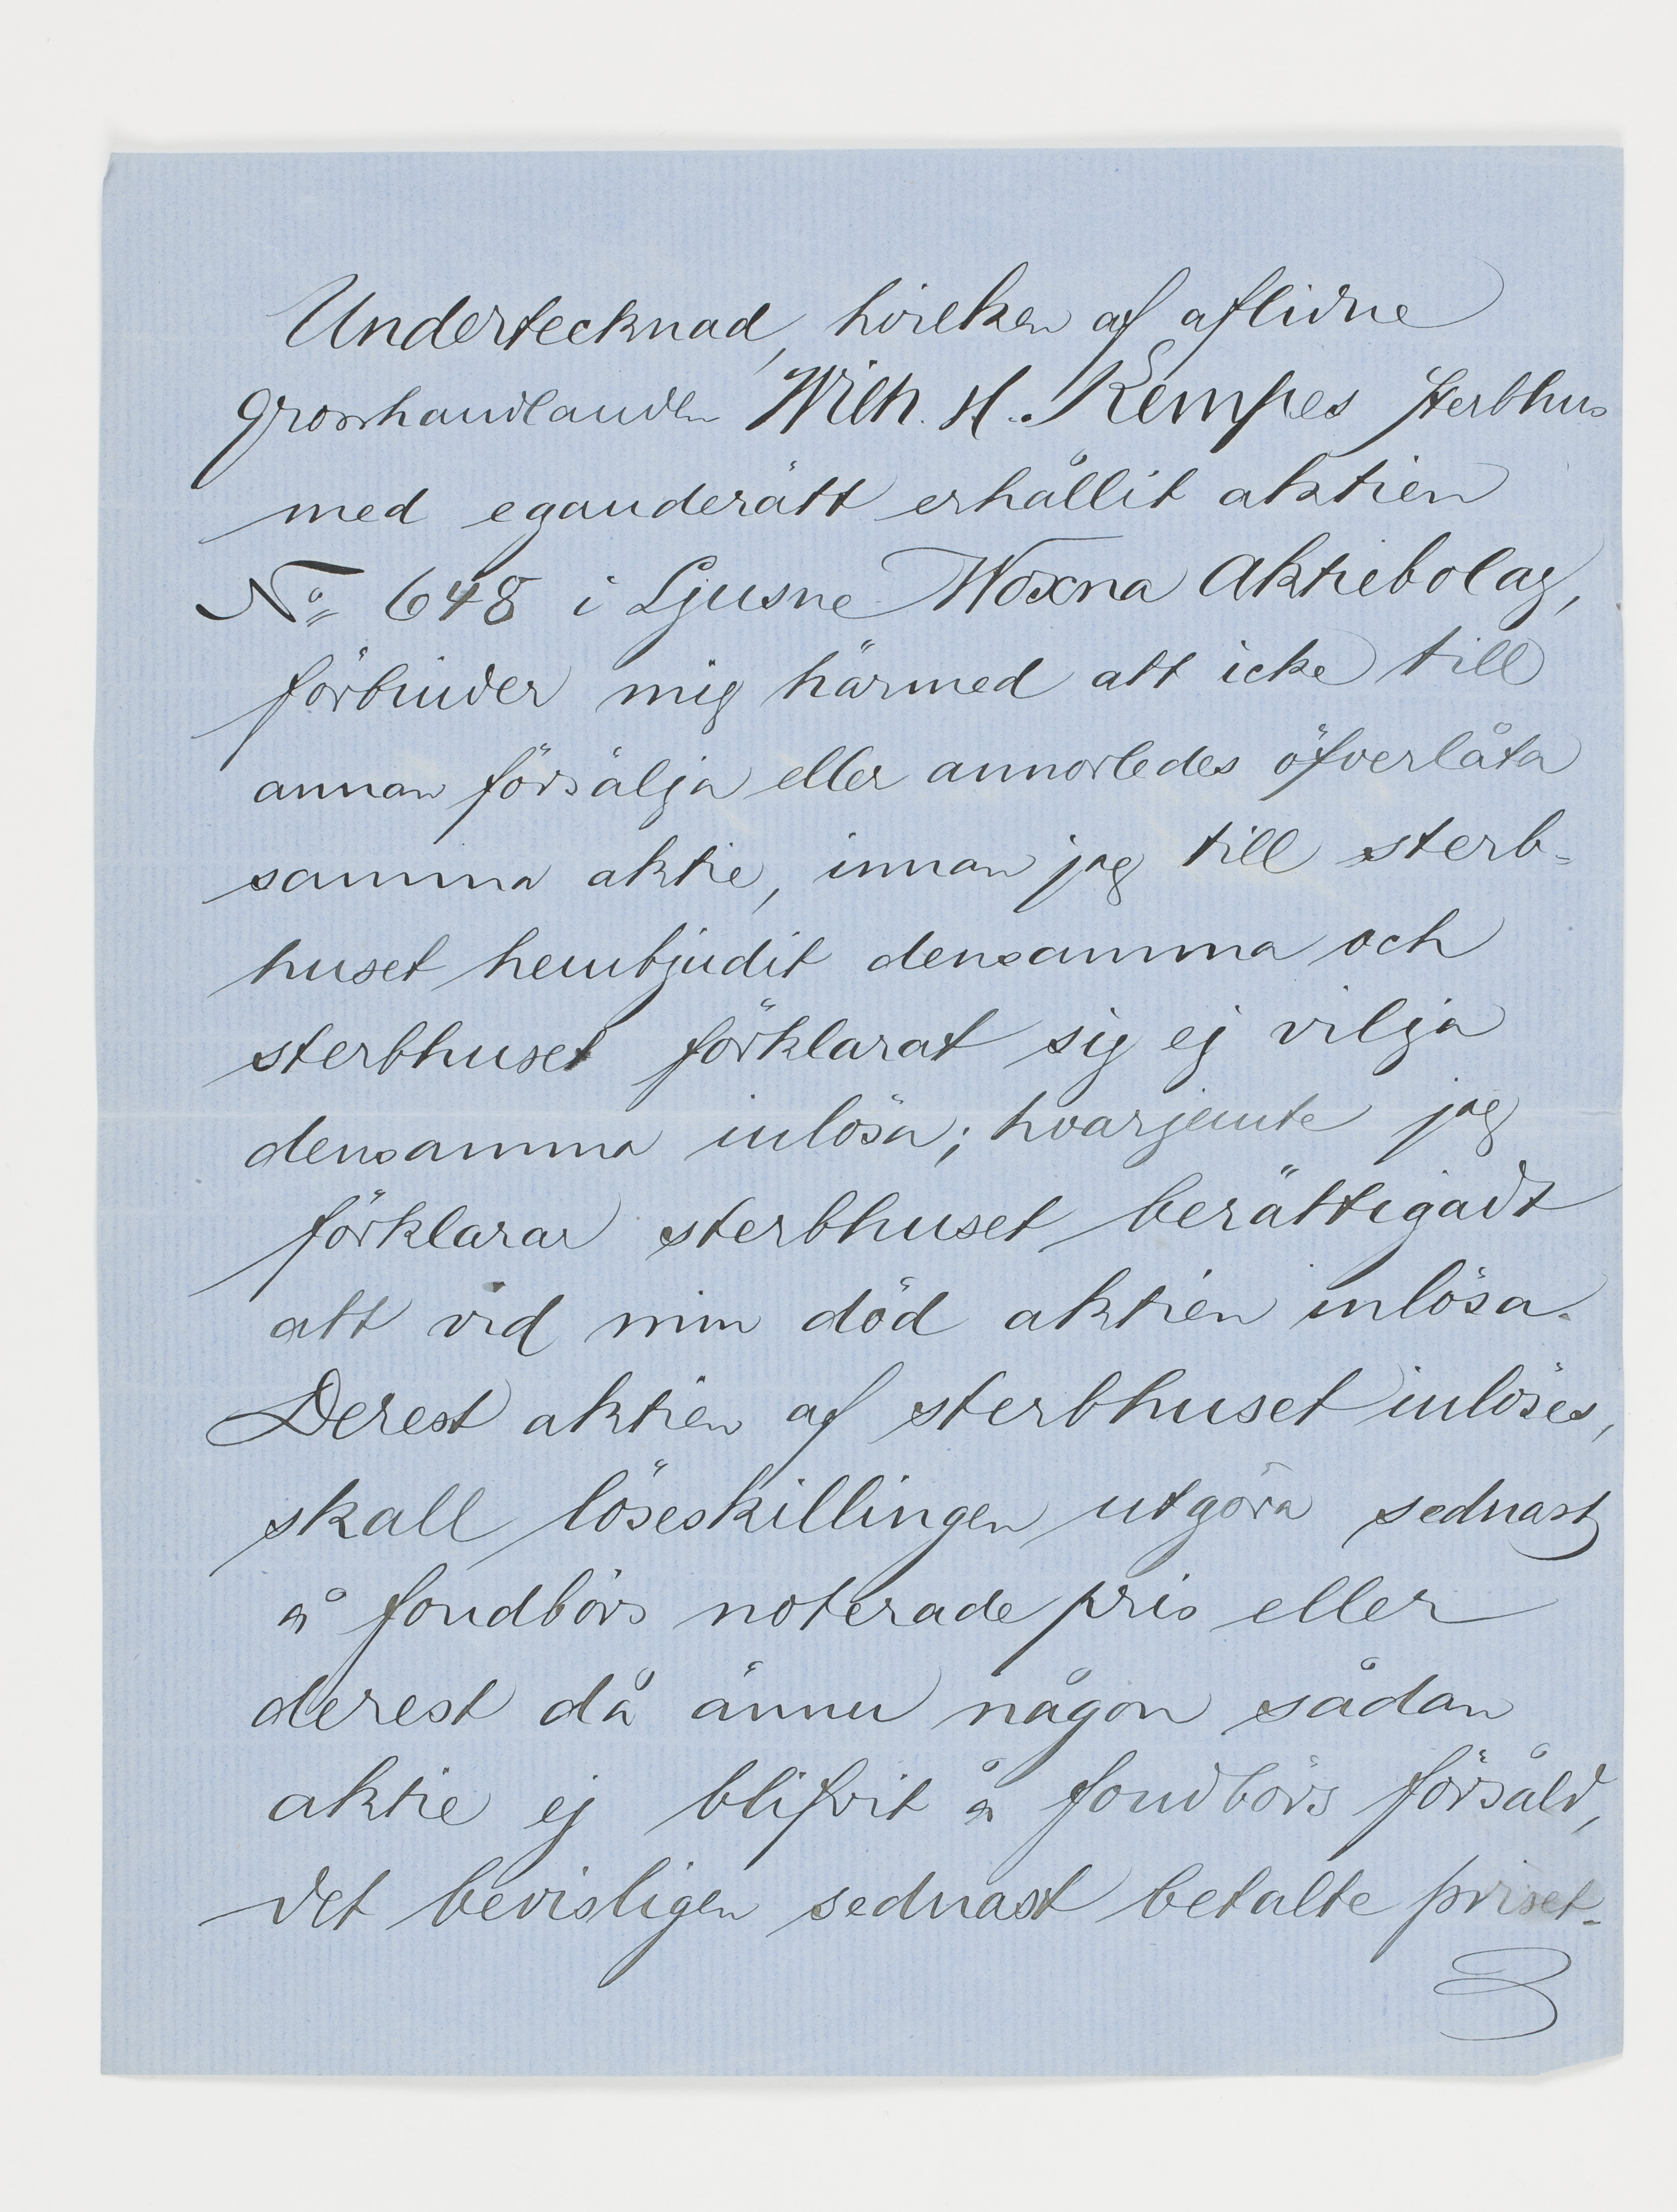 Undertecknad, hvilken af aflidne
grosshandlanden Wilh. H. Kempes sterbhus
med eganderätt erhållit aktien
No 648 i Ljusne Woxna Aktiebolag,
förbinder mig härmed att icke till
annan försälja eller annorledes öfverlåta
samma aktie, innan jag till sterb-
huset hembjudit densamma och
sterbhuset förklarat sig ej vilja
densamma inlösa; hvarjemte jag
förklarar sterbhuset berättigadt
att vid min död aktien inlösa.
Derest aktien af sterbhuset inlöses,
skall löseskillingen utgöra sednast
å fondbörs noterade pris eller
derest då ännu någon sådan
aktie ej blifvit å fondbörs försåld,
det bevisligen sednast betalte priset.